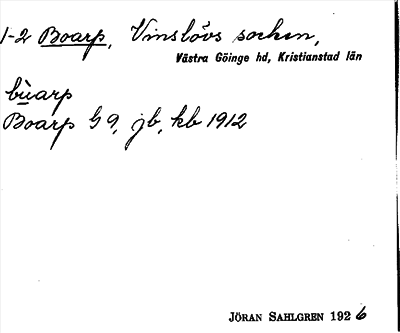 1-2 Boarp, Vinslövs socken,
Västra Göinge hd, Kristianstad län
bùarp
Boarp G 9, jb, kb 1912
JÖRAN SAHLGREN 1926